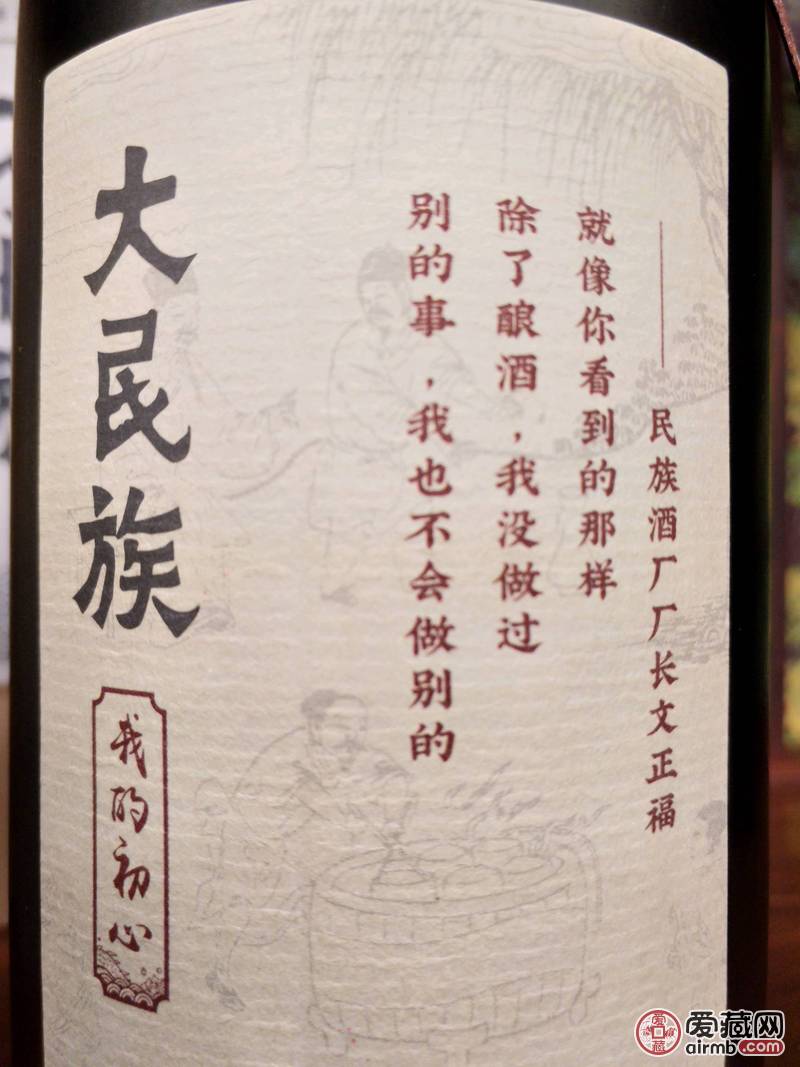 ——民族酒厂厂长文正福
就像你看到的那样
除了酿酒，我没做过
别的事，我也不会做别的
大民族
我的初心
爱藏网
airmb.com